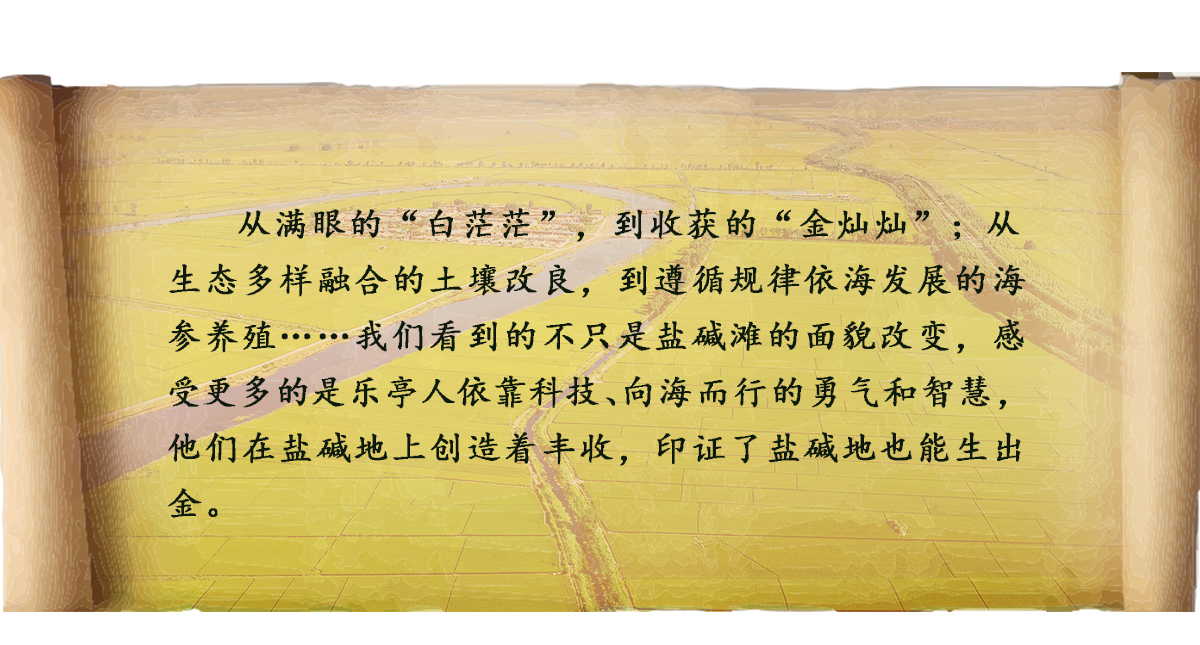 从满眼的“白茫茫”，到收获的“金灿灿”；从
生态多样融合的土壤改良，到遵循规律依海发展的海
参养殖……我们看到的不只是盐碱滩的面貌改变，感
受更多的是乐亭人依靠科技、向海而行的勇气和智慧，
他们在盐碱地上创造着丰收，印证了盐碱地也能生出
金。